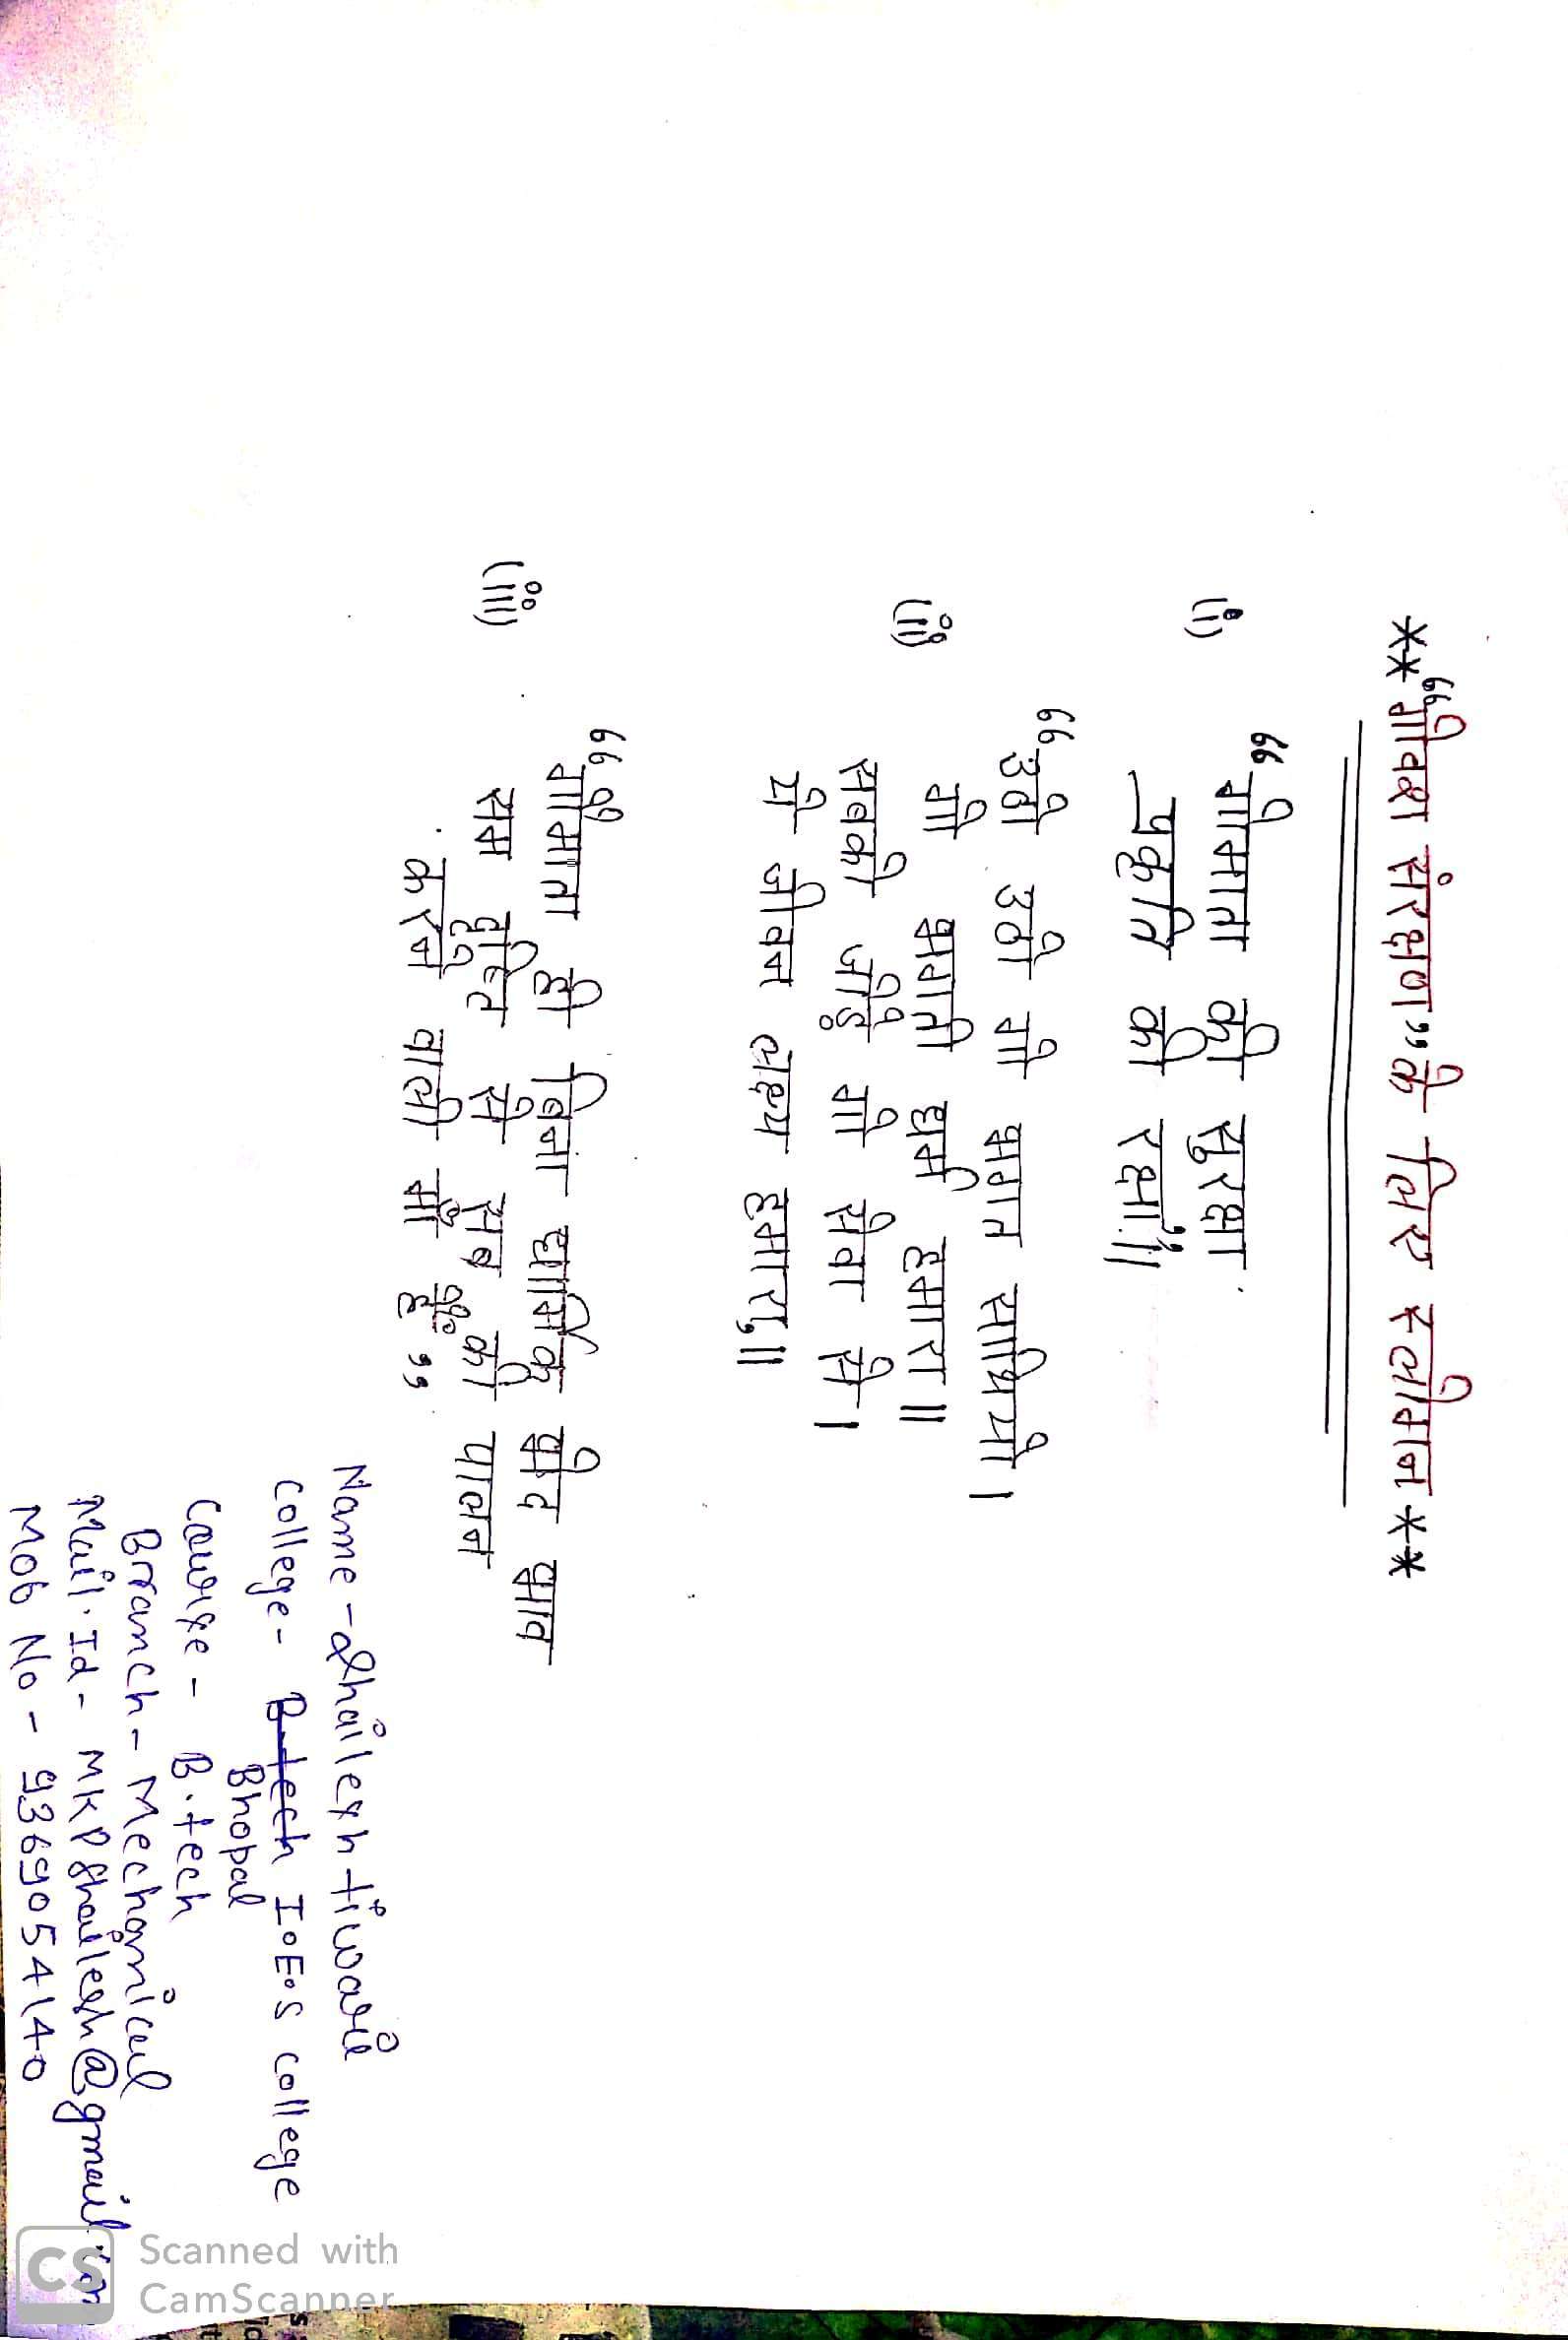 ** "गोवंश संरक्षण" के लिए स्लोगन **
(i) "गोमाता की सुरक्षा
प्रकृति की रक्षा"॥
(ii) "उठो उठो गो भगत साथियों।
गो भगती धर्म हमारा॥
सबको जोड़े गो सेवा से।
ये जीवन लक्ष्य हमारा॥
(iii) "गौमाता ही बिना धार्मिक भेद भाव
सम दृष्टि से सब की पालन
करने वाली माँ है"
Name - Shailesh tiwari
College - B.tech I.E.S College
Bhopal
Course - B.tech
Branch - Mechanical
Mail.Id - MKPShailesh@gmail.com
Mob No - 9369054140
CS Scanned with
CamScanner